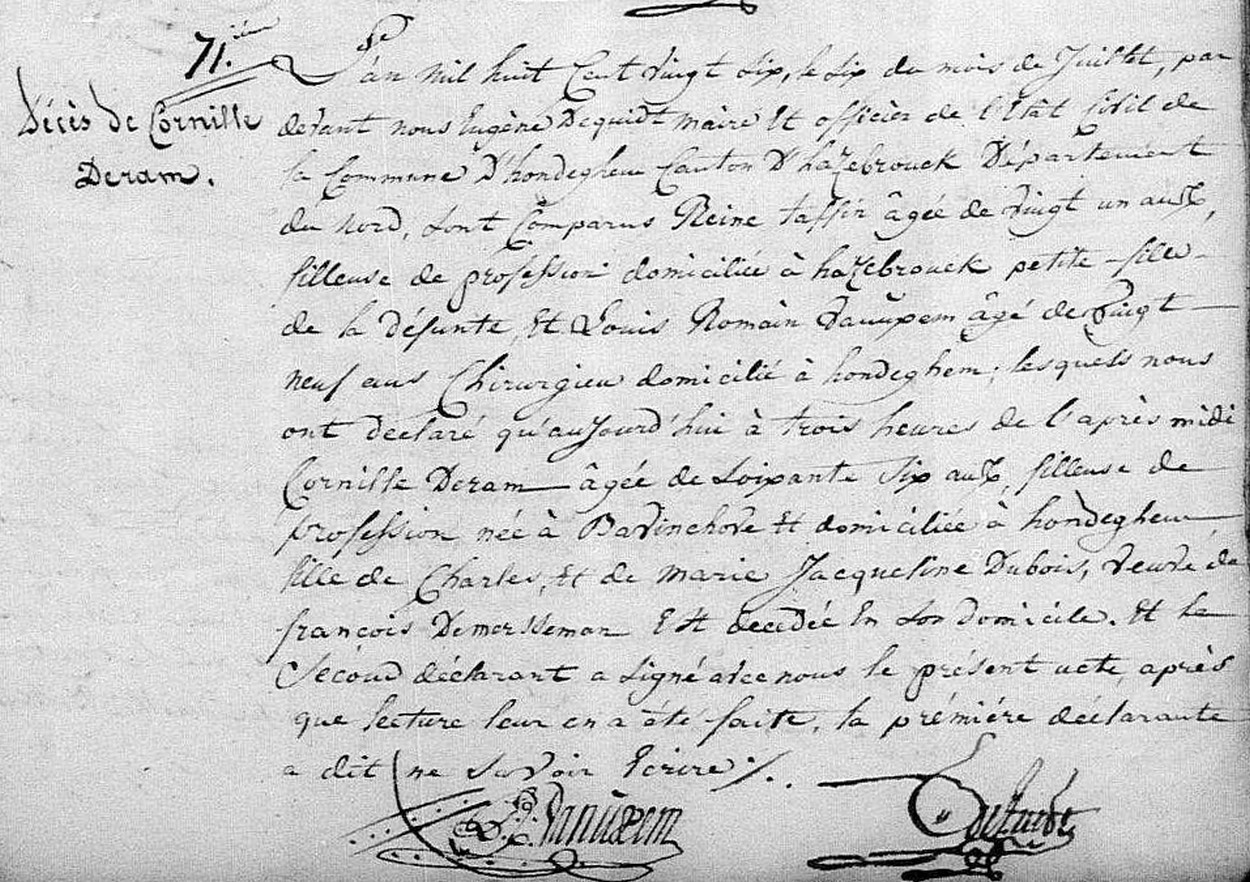 71.ième
Décès de Cornille
Deram.
L'an mil huit Cent vingt six, le six du mois de Juillet, par
devant nous Eugène Dequidt maire Et officier de l'Etât Civil de
la Commune D'hondeghem Canton D'hazebrouck Département
du Nord, sont Comparus Reine taffin âgée de vingt un ans,
filleuse de profession domiciliée à hazebrouck petite-fille
de la défunte, Et Louis Romain Vanüxem âgé de vingt
neuf ans Chirurgien domicilié à hondeghem; lesquels nous
ont declaré qu'aujourd'hui à trois heures de l'après midi
Cornille Deram âgée de soixante six ans, filleuse de
profession née à Bavinchove Et domiciliée à hondeghem
fille de Charles, Et de marie Jacqueline Dubois, veuve de
françois Demersseman Est decedée En son domicile. Et le
Second déclarant a signé avec nous le présent acte, après
que lecture leur en a été faite, la prémiére déclarante
a dit ne savoir Ecrire ./.
Vanüxem
Dequidt